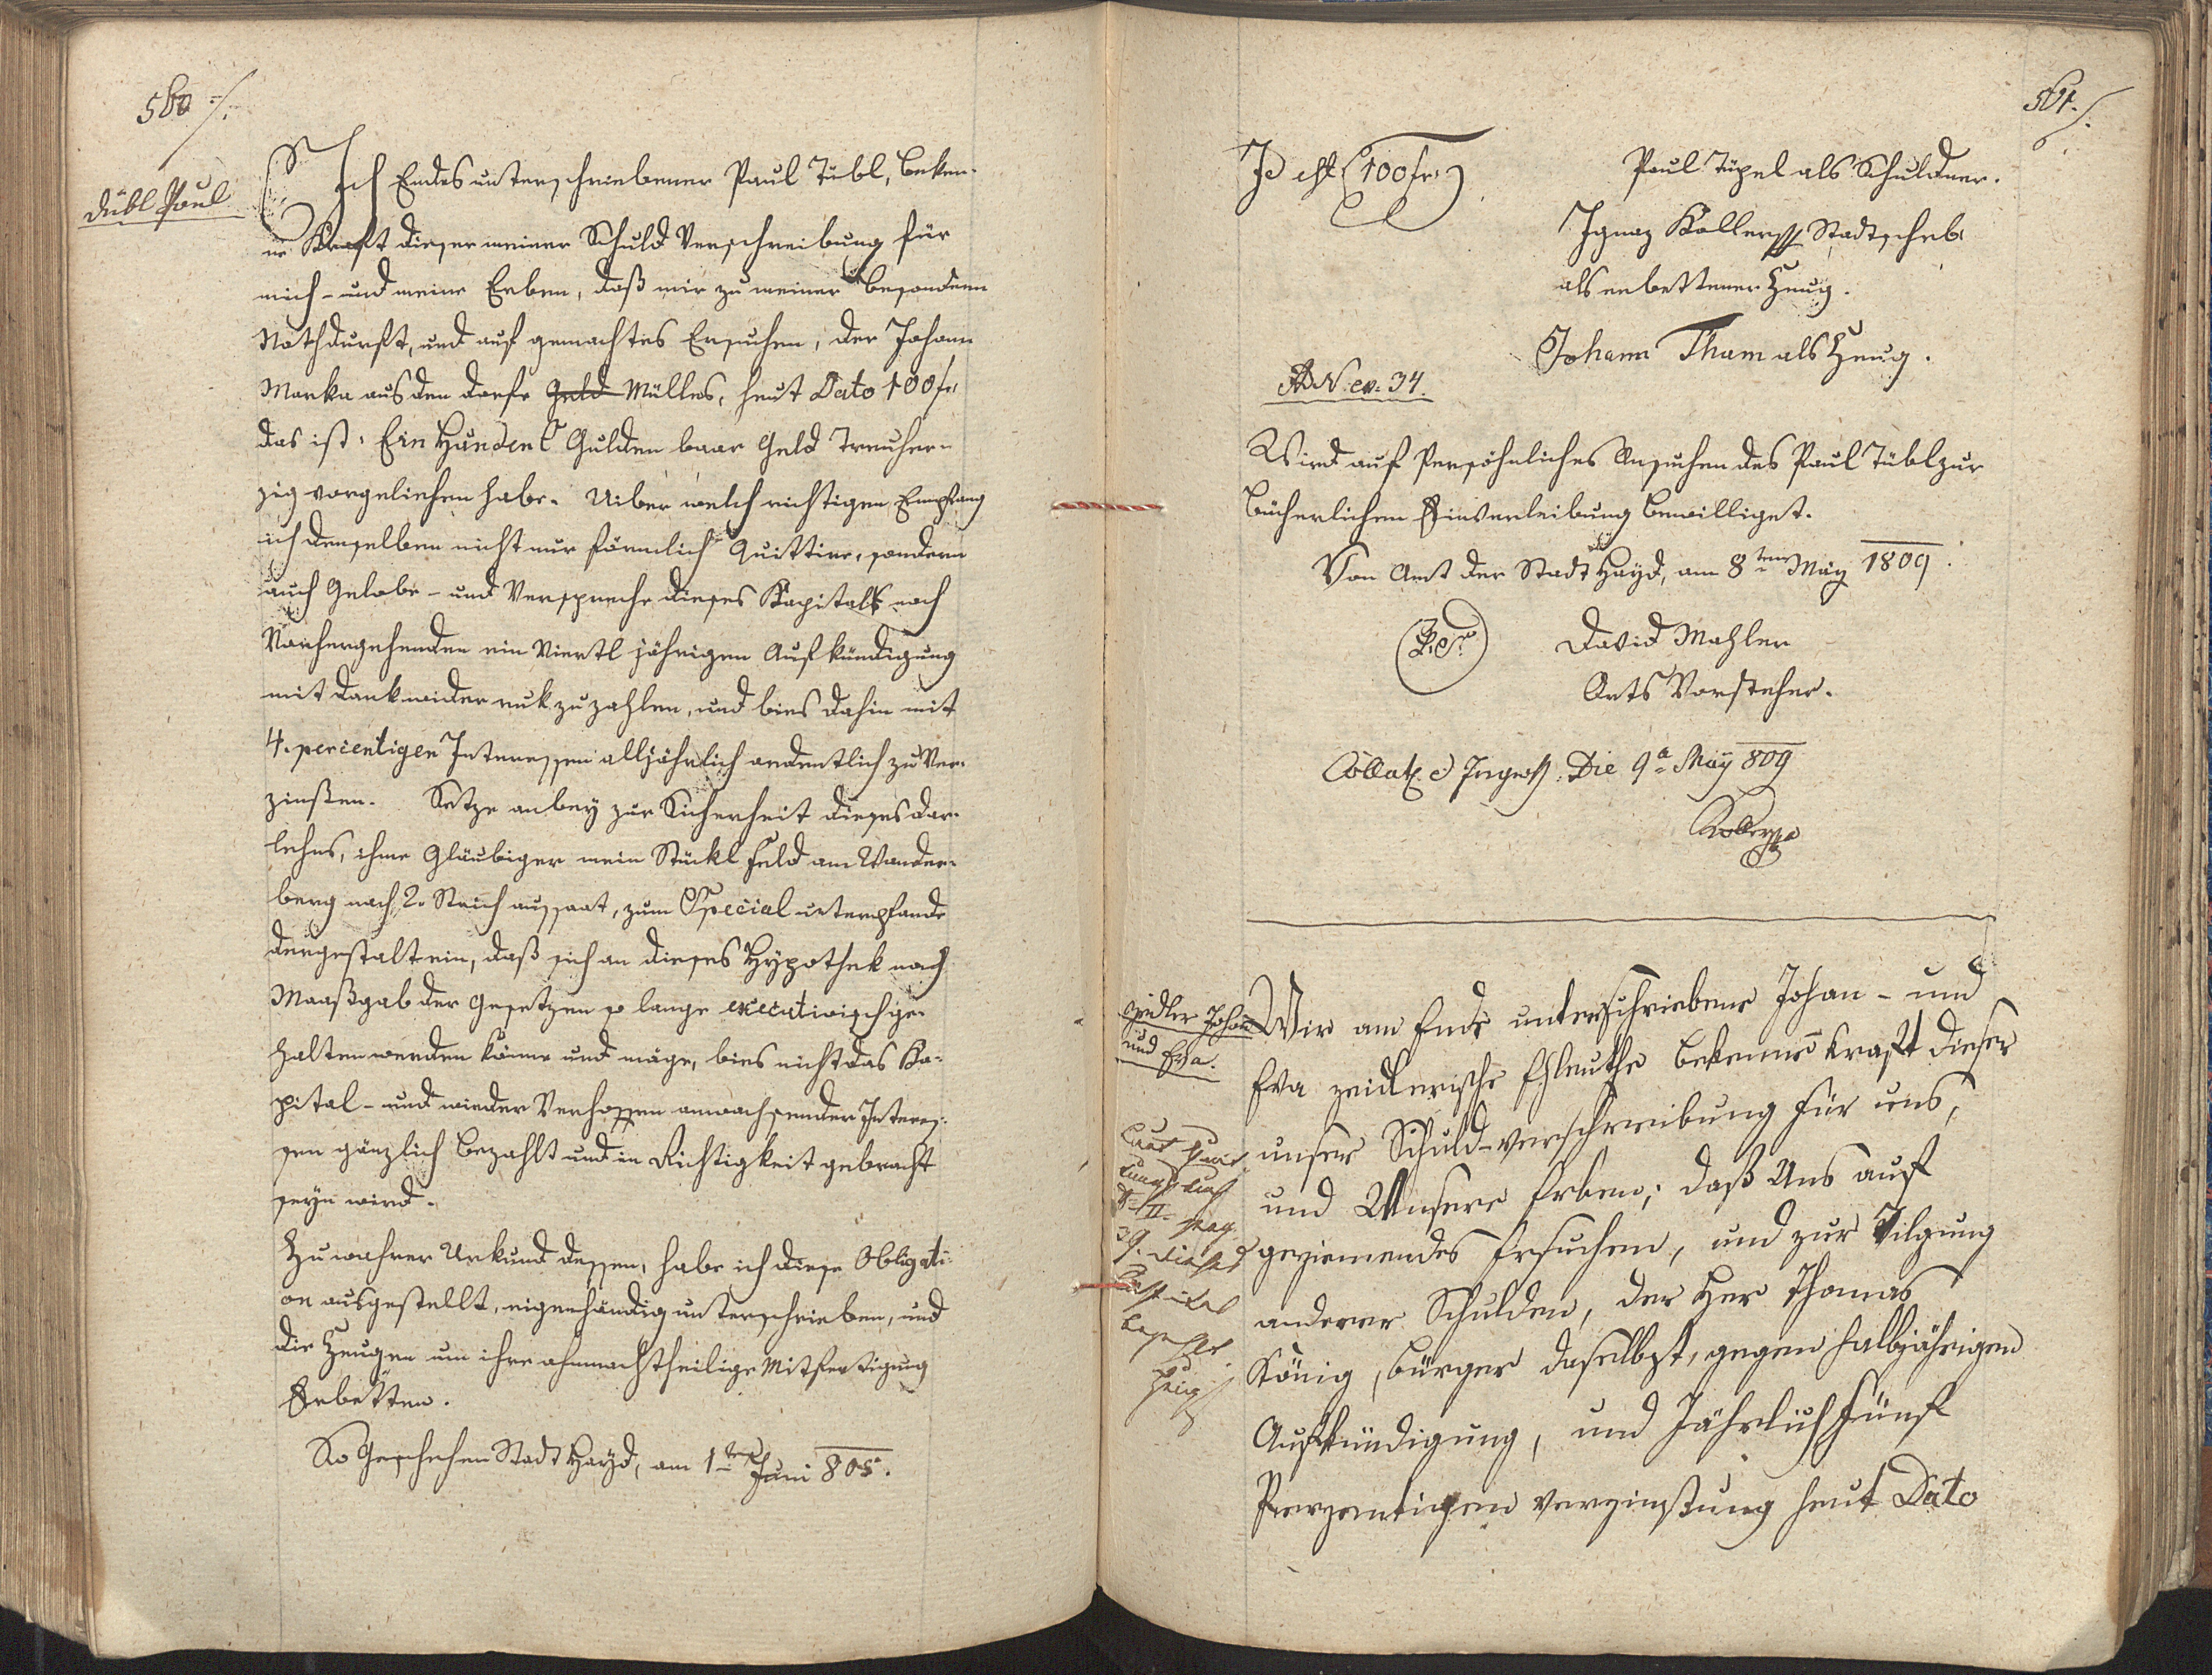 560 ./.
Dübl Paul
Ich Endes unterschriebener Paul Tübl, beken-
ne Kraft dieser meiner Schuld Verschreibung für
mich - und meine Erben, daß mir zu meiner besondern
Nothdurft, und auf gemachtes Ersuchen, der Johann
Marka aus den Dorfe Geld Mülles, heut Dato 100 fr
das ist: Ein Hundert Gulden baar Geld Treuher-
zig vorgeliehen habe. Uiber welch richtigen Empfang
ich denselben nicht nur förmlich Quittire, sondern
auch Gelobe - und Verspreche dieses Kapitall nach
Vorhergehenden ein Viertl jährigen Aufkündigung
mit Dank wider ruk zu zahlen, und bies dahin mit
4. percentigen Interessen alljährlich ordentlich zu Ver-
zinßen. Setze anbey zur Sicherheit dieses Dar-
lehns, ihme Gläubiger mein Stückl Feld am Wander-
berg nach 2. Strich aussaat, zum Special unterpfande
dergestalt ein, daß sich an dieses Hypothek nach
Maaßgab der Gesetzen so lange executivisch ge-
halten werden könne und möge, bies nicht das Ka-
pital - und wieder Verhoffen anwachsender Interes-
sen gänzlich bezahlt und in Richtigkeit gebracht
seyn wird.
Zu wahrer Urkund dessen, habe ich diese Obligati-
on ausgestellt, eigenhändig unterschrieben, und
die Zeugen um ihre ohnnachtheilige Mitfertigung
Erbetten.
So Geschehen Stadt Hayd, am 1ten Juni 805.
561. ./.
Id est (100 fr.)
Paul Tüpel als Schuldner.
Ignaz Koller Stadtschrb.
als erbettener Zeug.
Johann Tham als Zeug.
AD N. ex. 34.
Wird auf Persöhnliches Ansuchen des Paul Tübl zur
Bücherlichen Einverleibung bewilliget.
Von Amt der Stadt Hayd, am 8ten May 1809.
David Mahler
Orts Vorsteher.
Collat. et Ingross. Die 9a May 809
Koller
Zeidler Johan
und Eva.
Wir am Ende unterschriebene Johan - und
Eva zeidlerische Ehleuthe bekennen kraft dieser
unser Schuld-verschreibung für uns,
und Unsere Erben; daß Uns auf
geziemendes Ersuchen, und zur Tilgung
anderer Schulden, der Her Thomas
König, Bürger daselbst, gegen halbjährigen
Aufkündigung, und Jährlich fünf
Perzentigen verzinßung heut Dato
Laut Quit
tung
II. pag
29. dieses
Capital
bezahlt